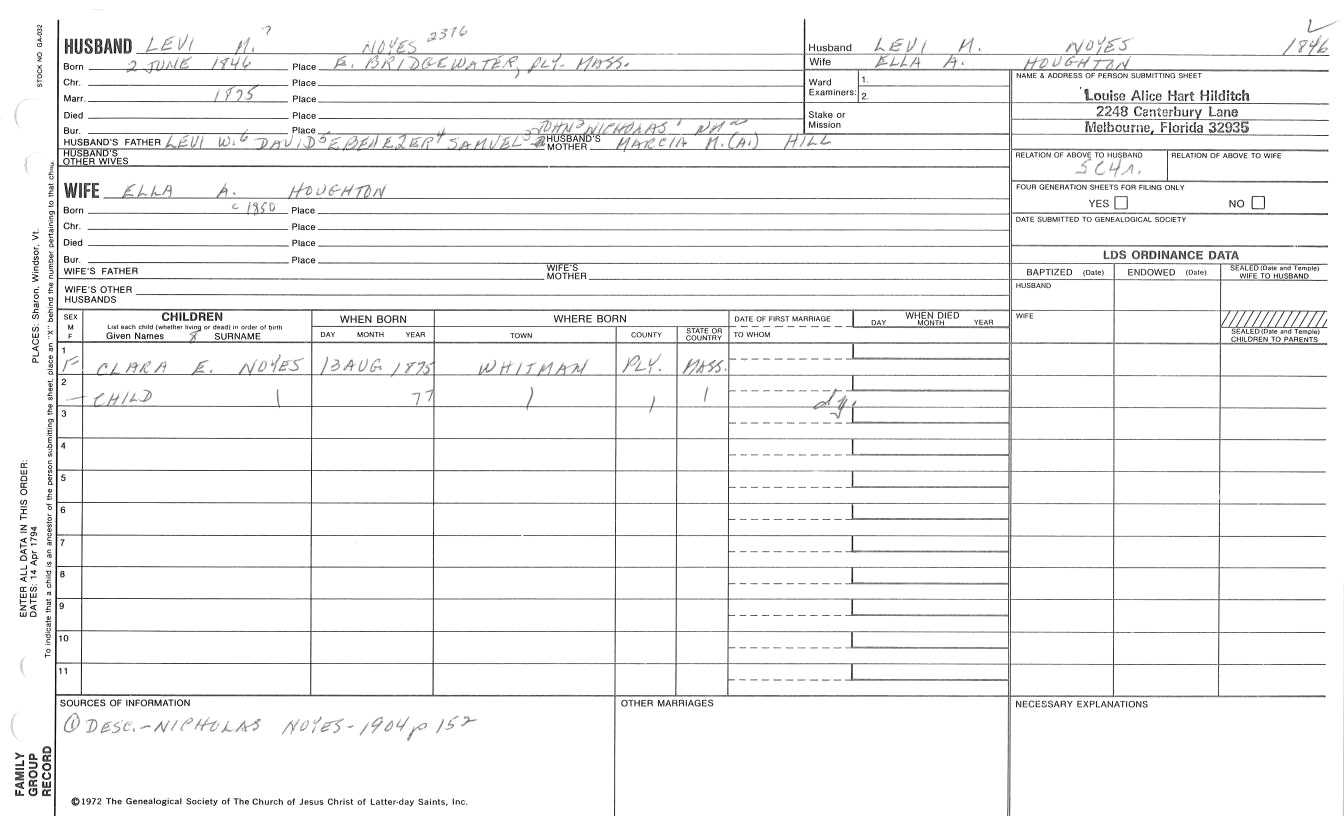 HUSBAND LEVI M.? NOYES 2376
Born 2 JUNE 1846 Place E. BRIDGEWATER, PLY. MASS.
Chr. Place
Marr. 1875 Place
Died Place
Bur. Place
HUSBAND'S FATHER LEVI W.6 DAVID5 EBENEZER4 SAMUEL3 JOHN2 NICHOLAS1 HUSBAND'S MOTHER MARCIA M.(A.) HILL
HUSBAND'S OTHER WIVES
Husband LEVI M. NOYES 1846
Wife ELLA A. HOUGHTON
Ward Examiners: 1.
2.
Stake or Mission
NAME & ADDRESS OF PERSON SUBMITTING SHEET
Louise Alice Hart Hilditch
2248 Canterbury Lane
Melbourne, Florida 32935
RELATION OF ABOVE TO HUSBAND RELATION OF ABOVE TO WIFE
5C4r.
FOUR GENERATION SHEETS FOR FILING ONLY
YES NO
DATE SUBMITTED TO GENEALOGICAL SOCIETY
WIFE ELLA A. HOUGHTON
Born c 1850 Place
Chr. Place
Died Place
Bur. Place
WIFE'S FATHER WIFE'S MOTHER
WIFE'S OTHER HUSBANDS
LDS ORDINANCE DATA
BAPTIZED (Date) ENDOWED (Date) SEALED (Date and Temple) WIFE TO HUSBAND
HUSBAND
WIFE
SEALED (Date and Temple) CHILDREN TO PARENTS
SEX M F
CHILDREN
List each child (whether living or dead) in order of birth
Given Names SURNAME
WHEN BORN
DAY MONTH YEAR
WHERE BORN
TOWN COUNTY STATE OR COUNTRY
DATE OF FIRST MARRIAGE
TO WHOM
WHEN DIED
DAY MONTH YEAR
1 F CLARA E. NOYES 13 AUG 1875 WHITMAN PLY. MASS.
2 - CHILD 77 dy.
3
4
5
6
7
8
9
10
11
SOURCES OF INFORMATION
① DESC.-NICHOLAS NOYES-1904 p 152
OTHER MARRIAGES
NECESSARY EXPLANATIONS
©1972 The Genealogical Society of The Church of Jesus Christ of Latter-day Saints, Inc.
STOCK NO. GA-032
PLACES: Sharon, Windsor, Vt.
ENTER ALL DATA IN THIS ORDER:
DATES: 14 Apr 1794
To indicate that a child is an ancestor of the person submitting the sheet, place an "X" behind the number pertaining to that child.
FAMILY GROUP RECORD